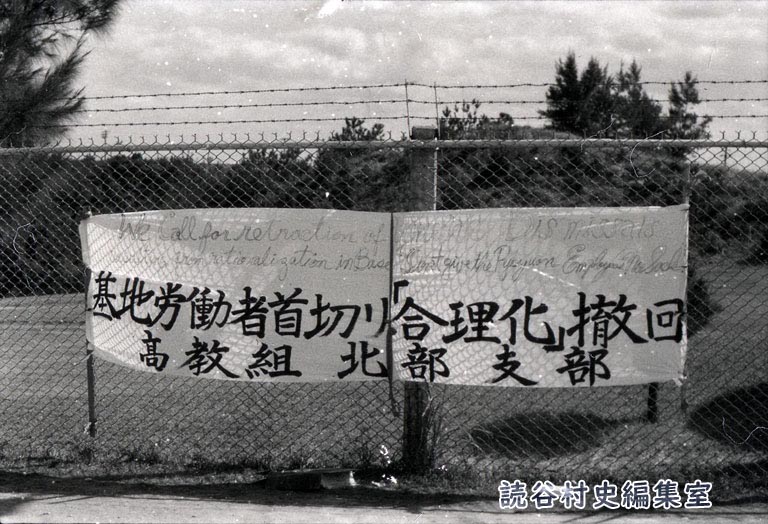 We Call for retraction of
rationalization in Base Dont give the Ryukyuan
基地労働者首切り「合理化」撤回
高教組北部支部
読谷村史編集室